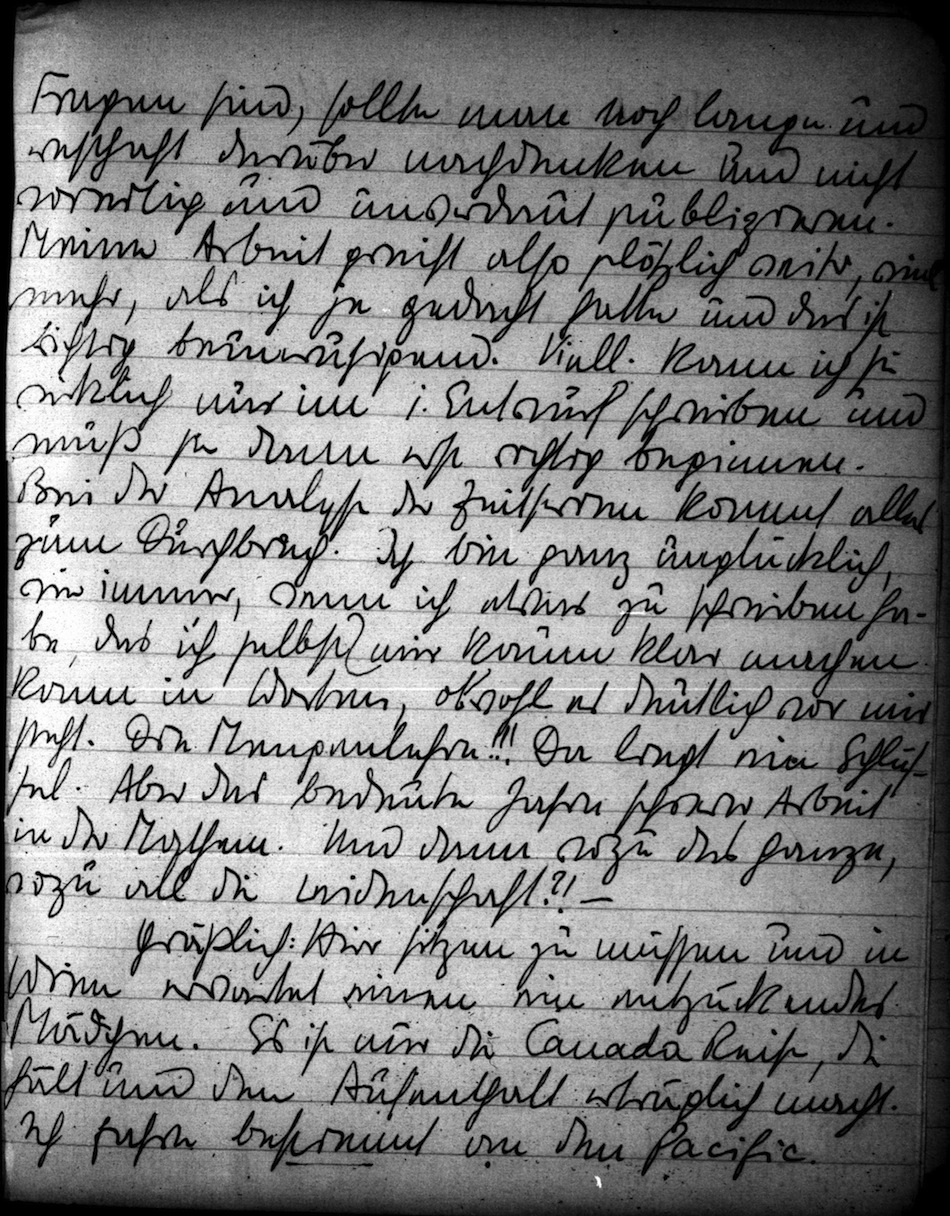 Fragen sind, sollte man noch lange und
ernsthaft darüber nachdenken und nicht
voreilig und unverdaut publizieren.
Meine Arbeit greift also plötzlich weiter, viel
mehr, als ich je gedacht hatte und das ist
richtig beunruhigend. Viell. kann ich sie
wirklich nur im 1. Entwurf schreiben und
muß sie dann erst richtig beginnen.
Bei der Analyse der Zeitserien kommt alles
zum Durchbruch. Ich bin ganz unglücklich,
wie immer, wenn ich etwas zu schreiben ha-
be, das ich selbst mir kaum klar machen
kann in Worten, obwohl es deutlich vor mir
steht. Die Mengenlehre!!! Da liegt ein Schlüs-
sel. Aber das bedeutet Jahre schwerer Arbeit
in der Mathem. Und dann wozu das ganze,
wozu all die Leidenschaft?! —
Gräßlich: Hier sitzen zu müssen und in
Wien erwartet einen ein entzückendes
Mädchen. Es ist nur die Canada Reise, die
hält und den Aufenthalt erträglich macht.
Ich fahre bestimmt an den Pacific.